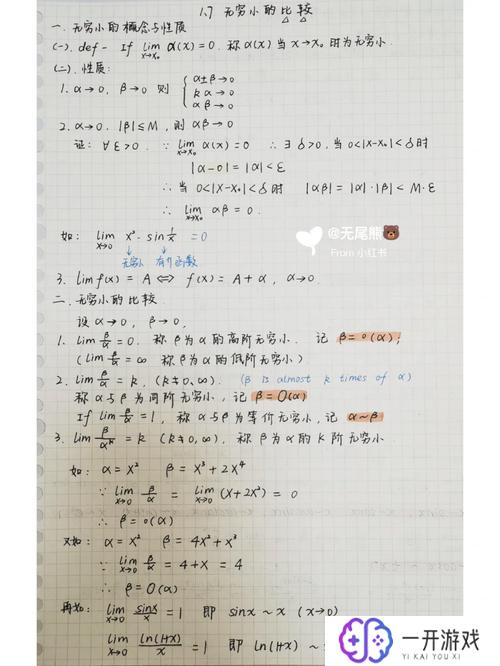 1.7 无穷小的比较
一. 无穷小的概念与性质
(一). def - If lim x→x₀ α(x)=0. 称 α(x) 当 x→x₀ 时为无穷小.
(二). 性质:
1. α→0, β→0 则 { α±β→0
kα→0
αβ→0
2. α→0. |β|≤M, 则 αβ→0
证: ∀ε>0. ∵ lim x→x₀ α(x)=0 ∴ ∃δ>0, 当 0<|x-x₀|<δ时
|α-0|=|α|<ε
∴ 当 0<|x-x₀|<δ时 |αβ|=|α|·|β|<M·ε
∴ lim x→x₀ αβ=0.
如: lim x→0 x²·sin 1/x =0
无穷小 有界函数
@无尾熊🐻
From 小红书
3. lim f(x)=A ⇔ f(x)=A+α, α→0.
二. 无穷小的比较.
设 α→0, β→0,
1. lim β/α=0. 称 β为 α 的高阶无穷小. 记 β=o(α);
(lim β/α=∞ 称 β为 α 的低阶无穷小)
2. lim β/α=k, (k≠0,∞). (β is almost k times of α)
称 α与β为同阶无穷小, 记 β=O(α)
If lim β/α=1, 称 α与β为等价无穷小, 记 α~β
3. lim β/αᵏ=k (k≠0,∞), 称 β为 α的 k阶无穷小
如: α=x² β=x³+2x⁴
∵ lim x→0 β/α = lim x→0 (x+2x²)=0
∴ β=o(α)
又如: α=x² β=4x²+x³
∵ lim x→0 β/α=4+x=4
∴ β=O(α)
再如: lim x→0 sinx/x=1 即 sinx~x (x→0)
lim x→0 ln(1+x)/x=1 即 ln(1+x)~
一开游戏
YI KAI YOU XI